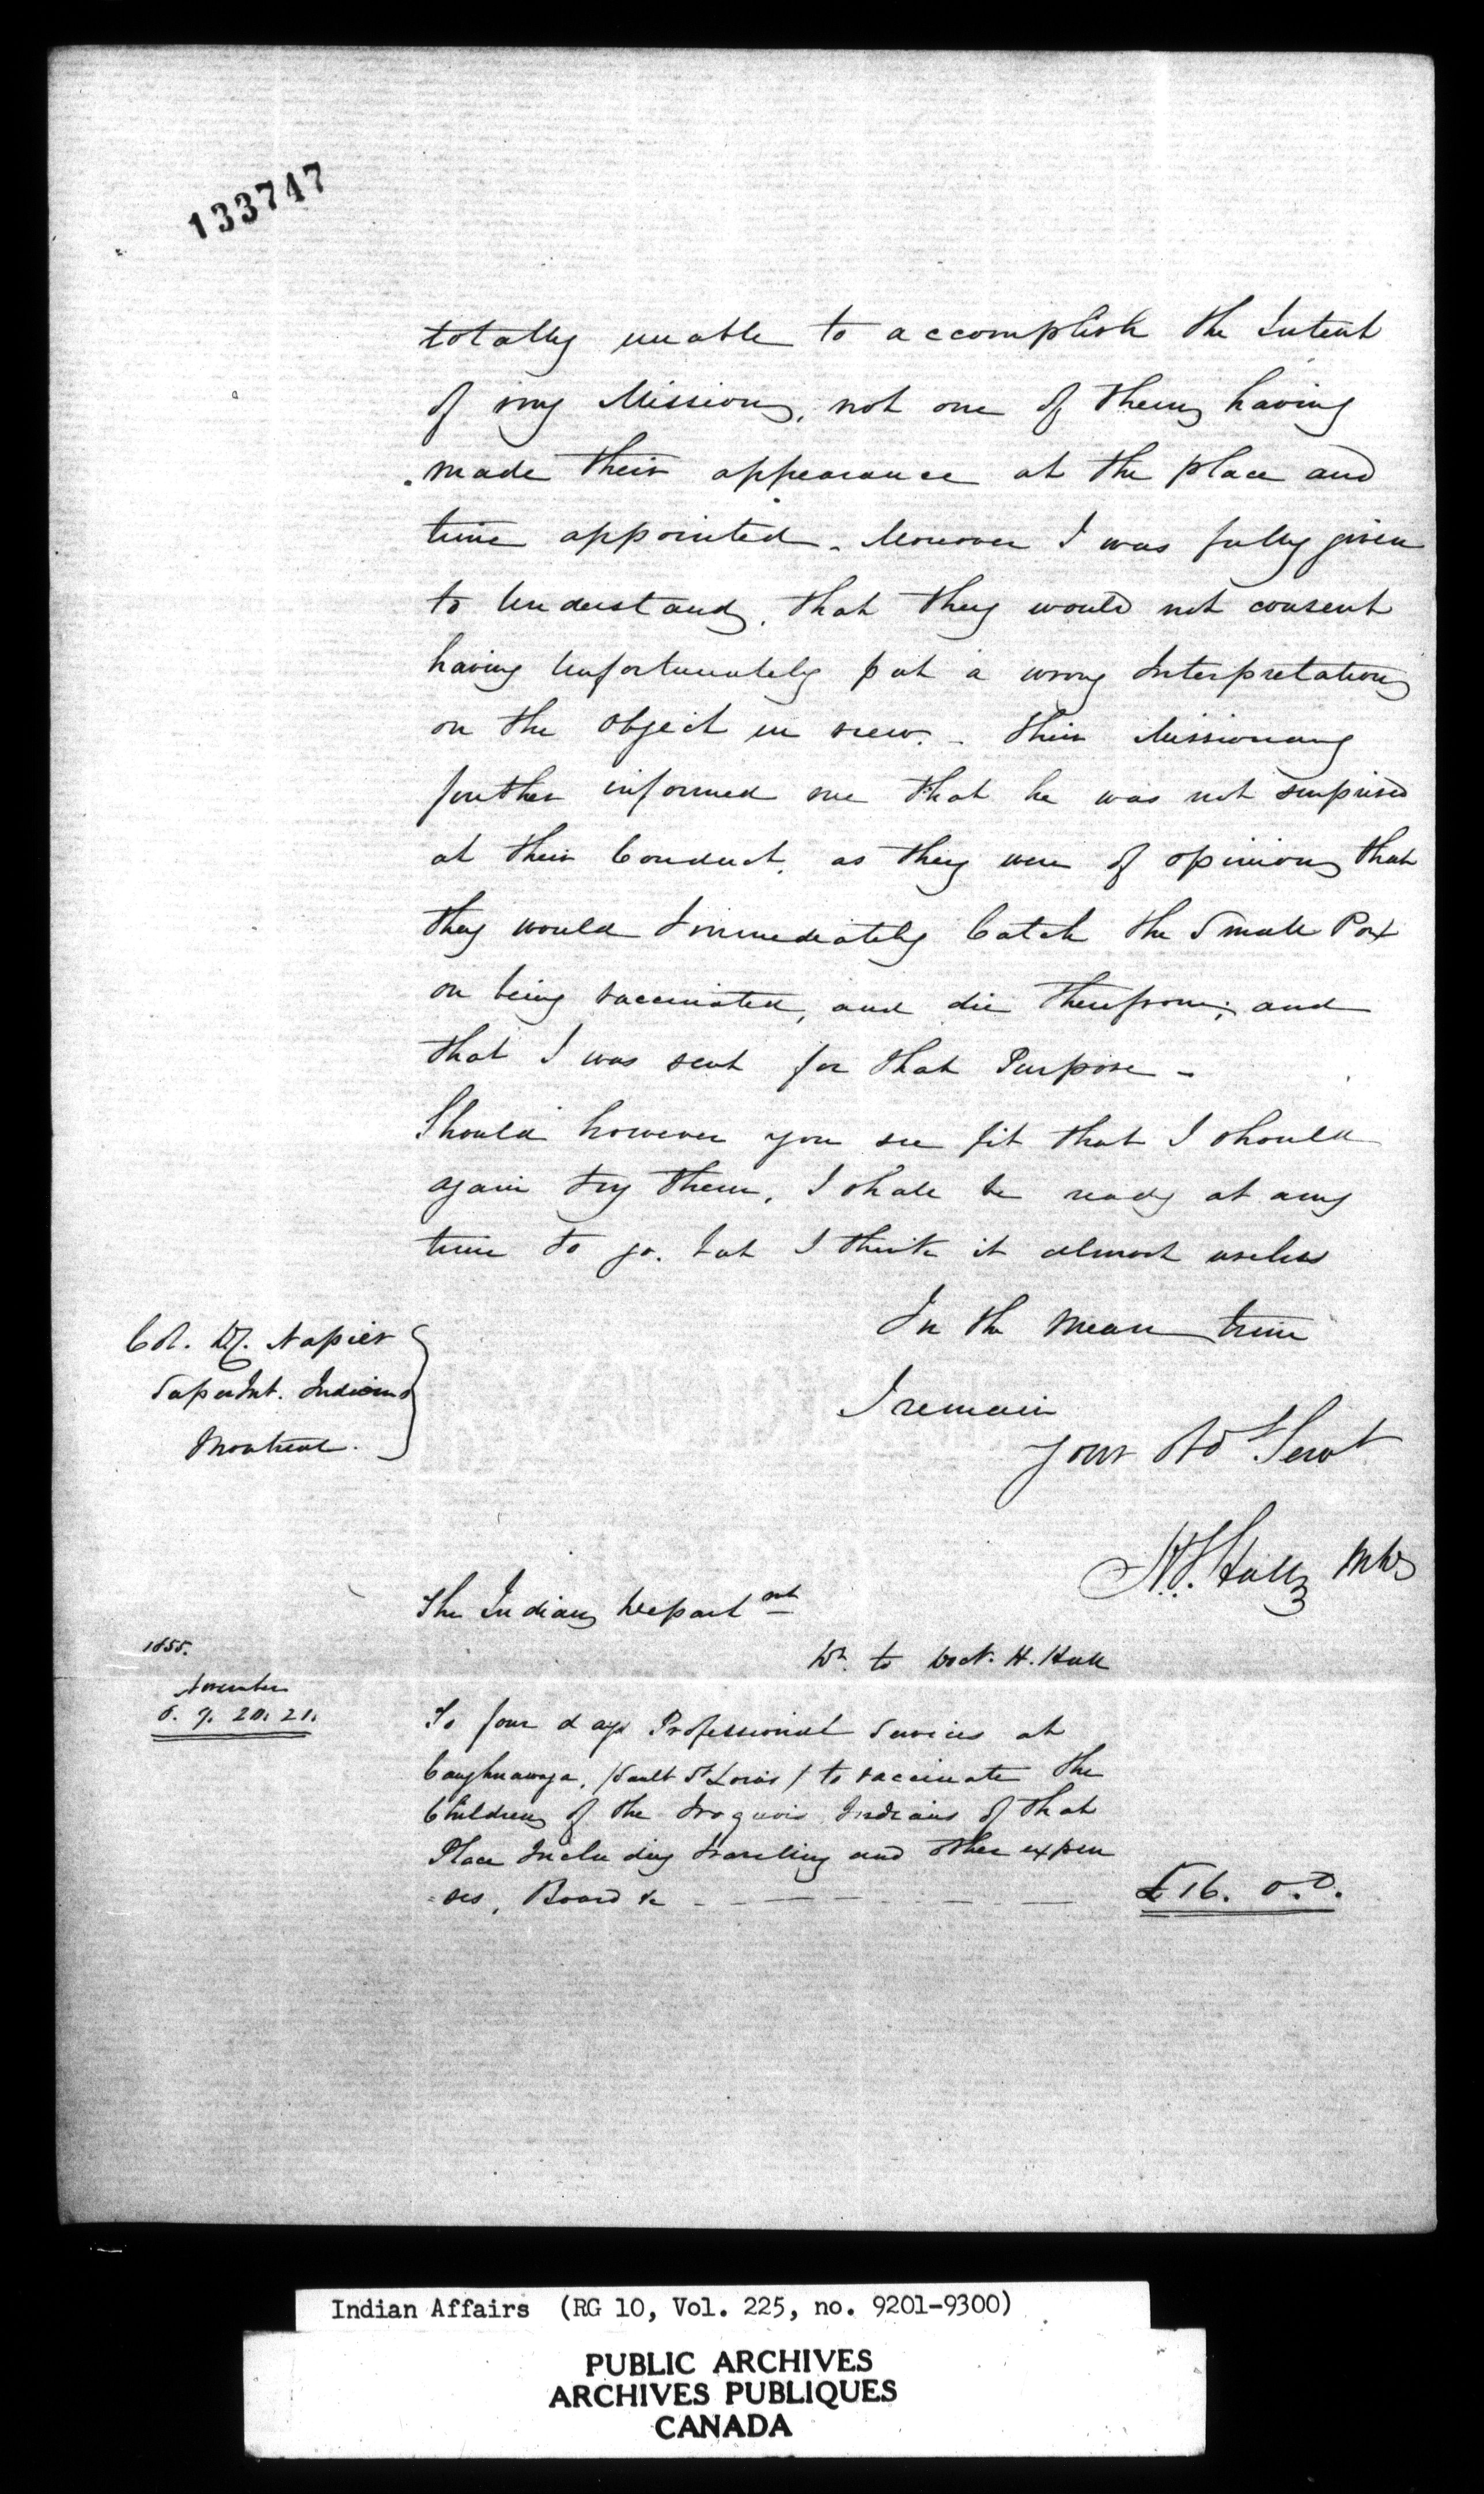 133747
totally unable to accomplish the Intent
of my Mission, not one of them having
made their appearance at the place and
time appointed - Moreover I was fully given
to Understand, that they would not consent
having Unfortunately put a wrong Interpretation
on the Object in view. - Their Missionary
further informed me that he was not surprised
at their Conduct, as they were of opinion that
they would Immediately Catch the Small Pox
on being vaccinated, and die therefrom; and
that I was sent for that Purpose -
Should however you see fit that I should
again try them, I shall be ready at any
time to go. but I think it almost useless
In the mean time
Col. Napier
SuperInt. Indians
Montreal.
I remain
your Obd Servt
Hall
The Indian Departmt
Dr. to Doct. H. Hall
1855.
November
8. 9. 20. 21.
To four days Professional Services at
Caughnawaga, /Sault St Louis/ to vaccinate the
Children of the Iroquois Indians of that
Place Including travelling and other expen
-ses, Board &c - - - - - - £16. 0. 0.
Indian Affairs (RG 10, Vol. 225, no. 9201-9300)
PUBLIC ARCHIVES
ARCHIVES PUBLIQUES
CANADA